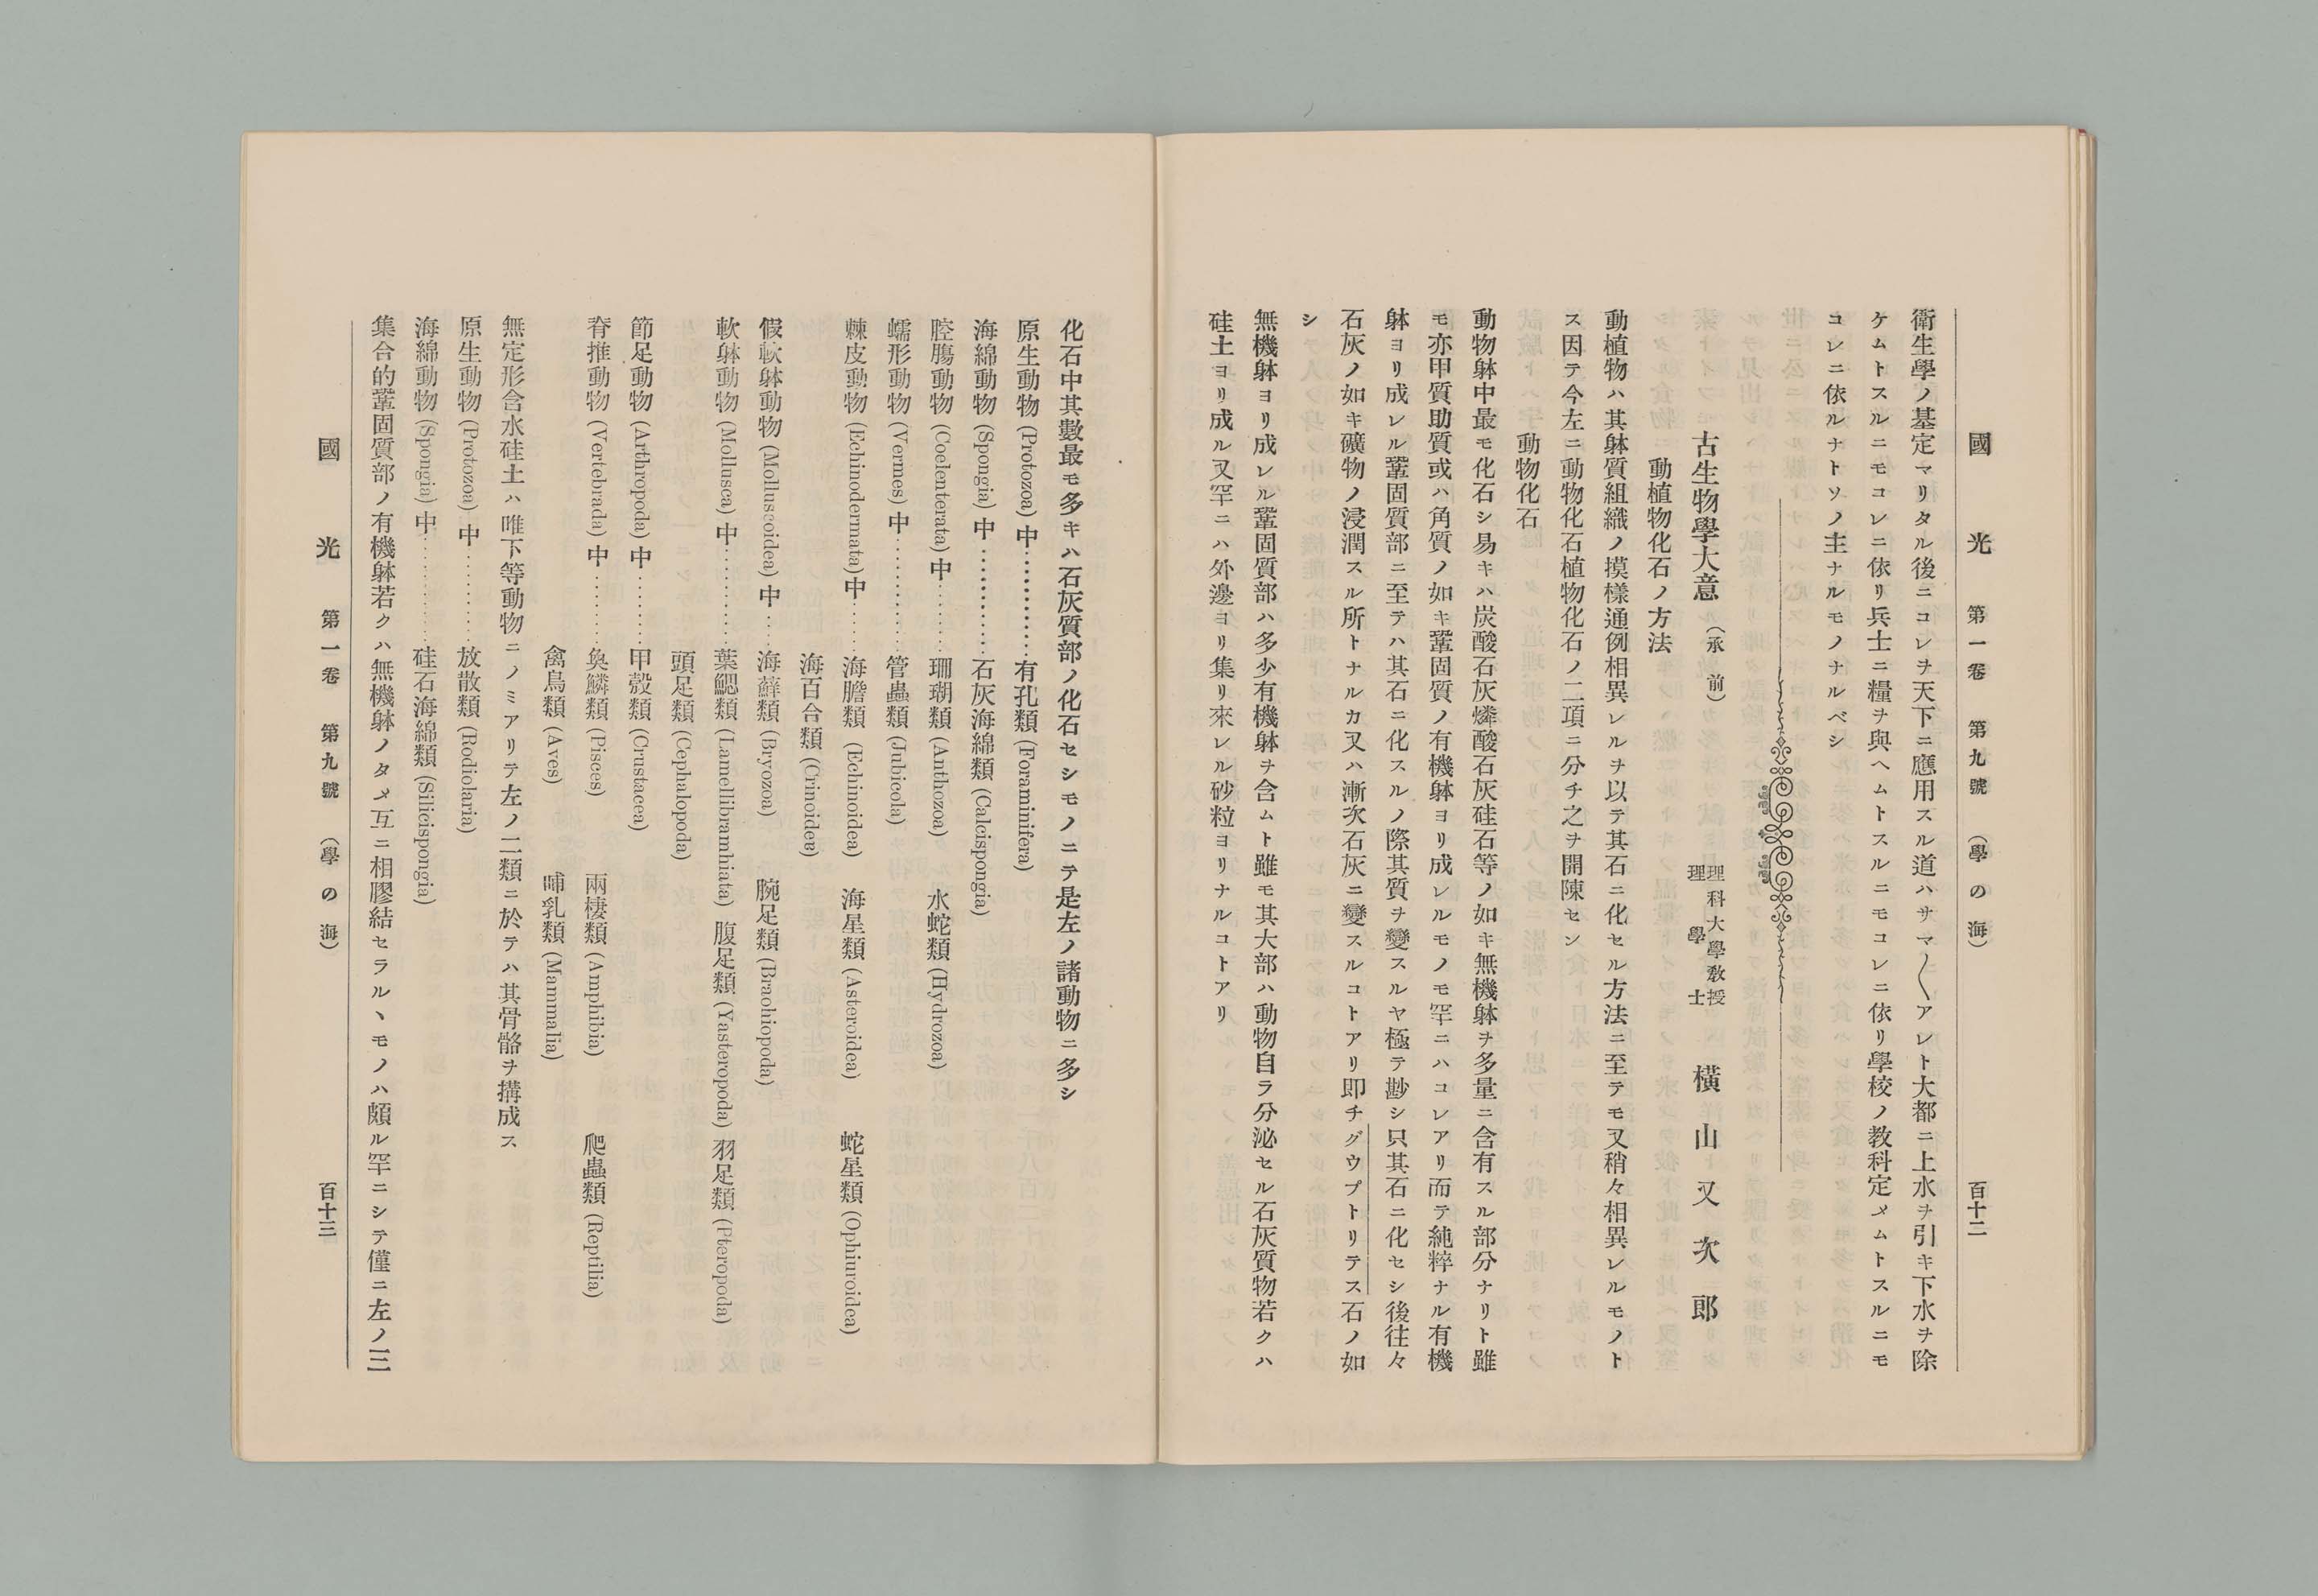 國光 第一卷 第九號 (學の海) 百十二
衛生學ノ基定マリタル後ニコレヲ天下ニ應用スル道ハサマ〱アレト大都ニ上水ヲ引キ下水ヲ除
ケムトスルニモコレニ依リ兵士ニ糧ヲ與ヘムトスルニモコレニ依リ學校ノ教科定メムトスルニモ
コレニ依ルナトソノ主ナルモノナルベシ
古生物學大意 (承前)
理科大學教授
理學士
橫山又次郎
動植物化石ノ方法
動植物ハ其躰質組織ノ摸樣通例相異レルヲ以テ其石ニ化セル方法ニ至テモ又稍々相異レルモノト
ス因テ今左ニ動物化石植物化石ノ二項ニ分チ之ヲ開陳セン
動物化石
動物躰中最モ化石シ易キハ炭酸石灰燐酸石灰硅石等ノ如キ無機躰ヲ多量ニ含有スル部分ナリト雖
モ亦甲質助質或ハ角質ノ如キ鞏固質ノ有機躰ヨリ成レルモノモ罕ニハコレアリ而テ純粹ナル有機
躰ヨリ成レル鞏固質部ニ至テハ其石ニ化スルノ際其質ヲ變スルヤ極テ尠シ只其石ニ化セシ後往々
石灰ノ如キ礦物ノ浸潤スル所トナルカ又ハ漸次石灰ニ變スルコトアリ即チグウプトリテス石ノ如
シ
無機躰ヨリ成レル鞏固質部ハ多少有機躰ヲ含ムト雖モ其大部ハ動物自ラ分泌セル石灰質物若クハ
硅土ヨリ成ル又罕ニハ外邊ヨリ集リ來レル砂粒ヨリナルコトアリ
化石中其數最モ多キハ石灰質部ノ化石セシモノニテ是左ノ諸動物ニ多シ
原生動物 (Protozoa) 中…………有孔類 (Foraminifera)
海綿動物 (Spongia) 中…………石灰海綿類 (Calcispongia)
腔膓動物 (Coelenterata) 中………珊瑚類 (Anthozoa) 水蛇類 (Hydrozoa)
蠕形動物 (Vermes) 中…………管蟲類 (Jubicola)
棘皮動物 (Echinodernata) 中……海膽類 (Echinoidea) 海星類 (Asteroidea) 蛇星類 (Ophiuroidea)
海百合類 (Crinoidea)
假軟躰動物 (Molluscoidea) 中……海蘚類 (Bryozoa) 腕足類 (Braohiopoda)
軟躰動物 (Mollusca) 中…………葉鰓類 (Lamellibramhiata) 腹足類 (Yasteropoda) 羽足類 (Pteropoda)
頭足類 (Cephalopoda)
節足動物 (Arthropoda) 中………甲殼類 (Crustacea)
脊推動物 (Vertebrada) 中………魚鱗類 (Pisces) 兩棲類 (Amphibia) 爬蟲類 (Reptilia)
禽鳥類 (Aves) 哺乳類 (Mammalia)
無定形含水硅土ハ唯下等動物ニノミアリテ左ノ二類ニ於テハ其骨骼ヲ搆成ス
原生動物 (Protozoa) 中…………放散類 (Rodiolaria)
海綿動物 (Spongia) 中…………硅石海綿類 (Silicispongia)
集合的鞏固質部ノ有機躰若クハ無機躰ノタメ互ニ相膠結セラルヽモノハ頗ル罕ニシテ僅ニ左ノ三
國光 第一卷 第九號 (學の海) 百十三